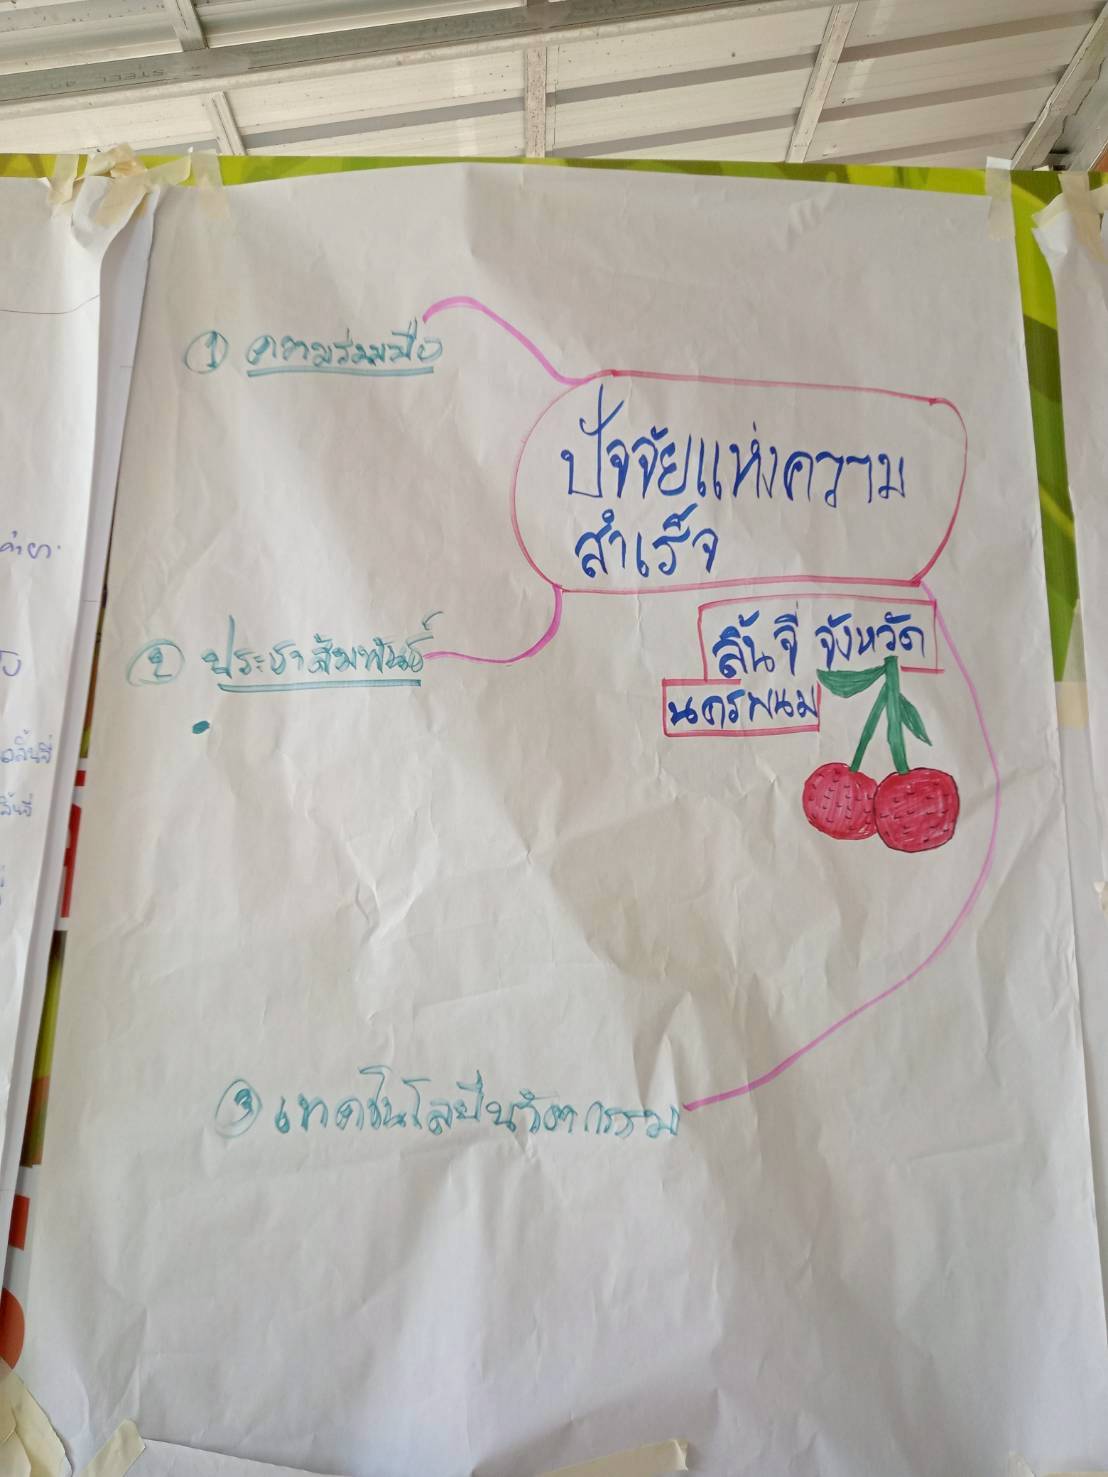 ปัจจัยแห่งความ
สำเร็จ
ลิ้นจี่ จังหวัด
นครพนม
① ความร่วมมือ
② ประชาสัมพันธ์
③ เทคโนโลยีนวัตกรรม
ลิ้นจี่
ลิ้นจี่